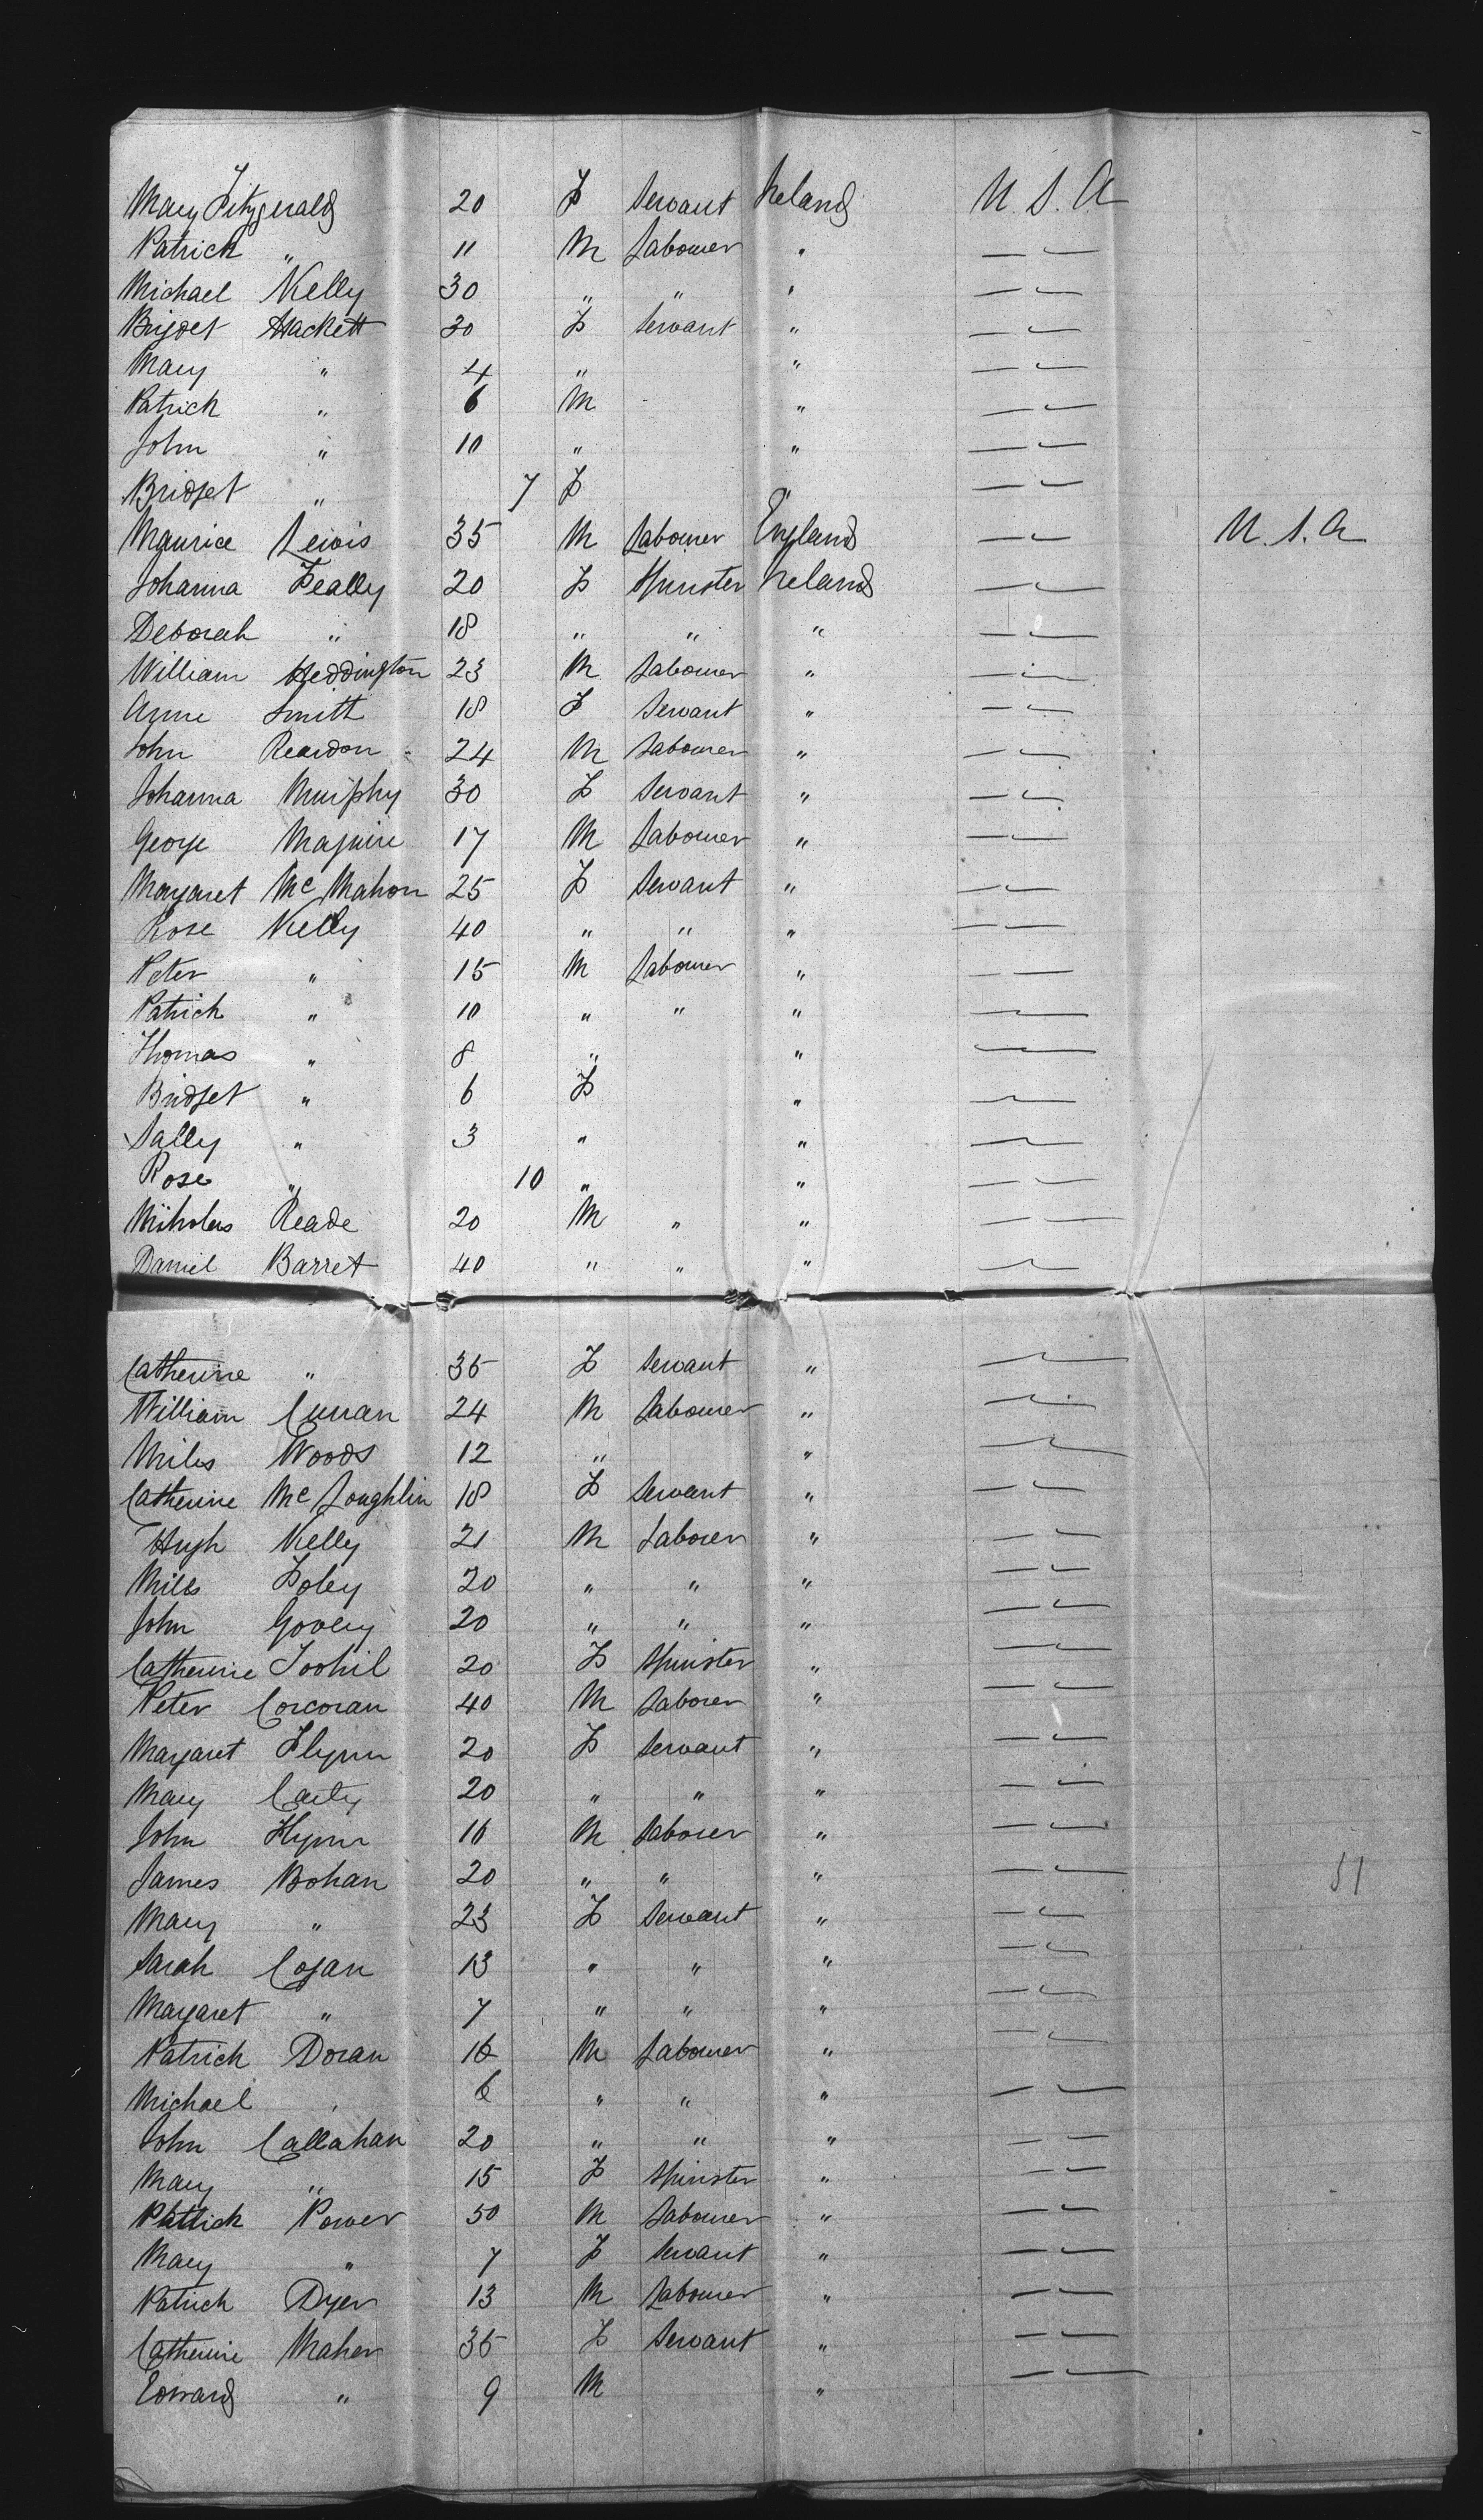 Mary Fitzgerald 20 F Servant Ireland U.S.A
Patrick " 11 M Labourer " — —
Michael Kelly 30 " " " — —
Bridget Hackett 30 F Servant " — —
Mary " 4 " " — —
Patrick " 6 M " — —
John " 10 " " — —
Bridget " 7 F " — —
Maurice Lewis 35 M Labourer England — — U.S.A
Johanna Feally 20 F Spinster Ireland — —
Deborah " 18 " " " — —
William Heddington 23 M Labourer " — —
Anne Smith 18 F Servant " — —
John Reardon 24 M Labourer " — —
Johanna Murphy 30 F Servant " — —
George Maguire 17 M Labourer " — —
Margaret McMahon 25 F Servant " — —
Rose Kelly 40 " " " — —
Peter " 15 M Labourer " — —
Patrick " 10 " " " — —
Thomas " 8 " " — —
Bridget " 6 F " — —
Sally " 3 " " — —
Rose " 10 " " — —
Nicholas Reade 20 M " " — —
Daniel Barret 40 " " " — —
Catherine " 35 F Servant " — —
William Curran 24 M Labourer " — —
Miles Woods 12 " " — —
Catherine McLoughlin 18 F Servant " — —
Hugh Kelly 21 M Laborer " — —
Mills Foley 20 " " " — —
John Govery 20 " " " — —
Catherine Toohil 20 F Spinster " — —
Peter Corcoran 40 M Laborer " — —
Margaret Flynn 20 F Servant " — —
Mary Carty 20 " " " — —
John Flynn 16 M Laborer " — —
James Bohan 20 " " " — — 51
Mary " 23 F Servant " — —
Sarah Cogan 13 " " " — —
Margaret " 7 " " " — —
Patrick Doran 16 M Labourer " — —
Michael " 6 " " " — —
John Callahan 20 " " " — —
Mary " 15 F Spinster " — —
Patrick Power 50 M Labourer " — —
Mary " 7 F Servant " — —
Patrick Dyer 13 M Labourer " — —
Catherine Maher 35 F Servant " — —
Edward " 9 M " — —